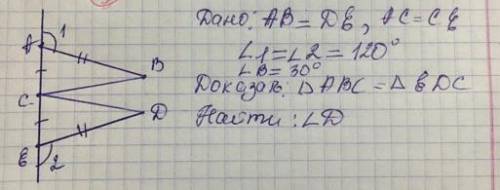 Дано: AB = DE, AC = CE
∠1 = ∠2 = 120°
∠B = 30°
Доказать: △ABC = △EDC
Найти: ∠D
A
1
B
C
D
E
2